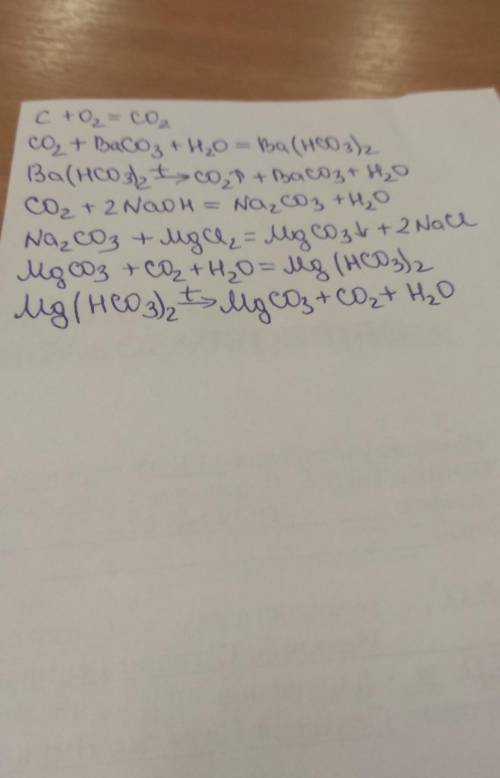 C + O₂ = CO₂
CO₂ + BaCO₃ + H₂O = Ba(HCO₃)₂
Ba(HCO₃)₂ –t→ CO₂↑ + BaCO₃ + H₂O
CO₂ + 2NaOH = Na₂CO₃ + H₂O
Na₂CO₃ + MgCl₂ = MgCO₃↓ + 2NaCl
MgCO₃ + CO₂ + H₂O = Mg(HCO₃)₂
Mg(HCO₃)₂ –t→ MgCO₃ + CO₂ + H₂O